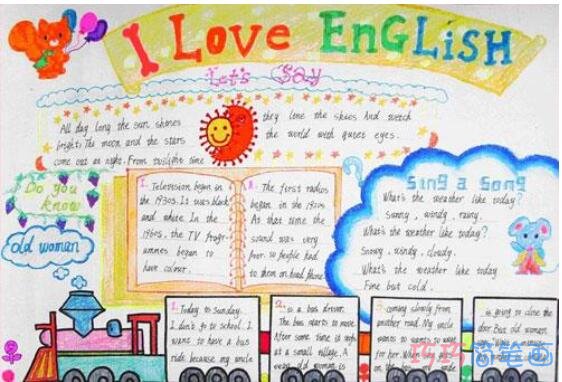 I Love EnGLiSH
Let's Say
All day long the sun shines
bright. The moon and the stars
come out at night. From twilight time
they line the skies And wetch
the world with quiet eyes.
Do you
know
old woman
1. Television began in
the 1930s. It was black
and white. In the
1960s, the TV progr-
ammes began to
have colour.
2. The first radios
began in the 1920s.
At that time the
sound was very
poor. so people had
to them on head phone
Sing a Song
What's the weather like today?
Sunny, windy, rainy.
What's the weather like today?
Snowy, windy, cloudy.
What's the weather like today
Fine but cold.
1. Today to sunday.
I don't go to school. I
want to have a bus
ride. because my uncle
2. is a bus driver.
The bus starts to move
After some time is
at a small village. A
very old woman is
3. coming slowly from
another road. My uncle
wants to wait
for her. When
on the bus
is going to close the
door. But old woman